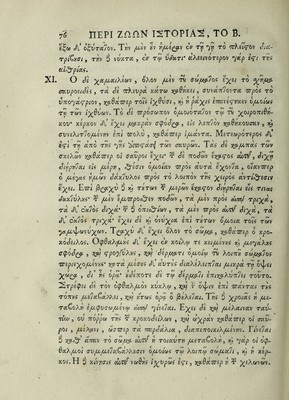 76 ΠΕΡΙ ΖΩΩΝ ΙΣΤΟΡΙΑΣ, ΤΟ Β.
ἔξω δ' ὀξύταται. Τὴν μὲν ἓν ἡμέραν ἐν τῇ γῇ τὸ πλεῖστον δια-
τρίβουσι, τὴν δὲ νύκτα, ἐν τῷ ὕδατι· ἀλεεινότερον γάρ ἐστι τῆς
αἰθρίας.
XI. Ο δὲ χαμαιλέων, ὅλον μὲν τοῦ σώματος ἔχει τὸ σχῆμα
σαυροειδὲς, τὰ δὲ πλευρὰ κάτω καθήκει, συνάπτοντα πρὸς τὸ
ὑπογάστριον, καθάπερ τοῖς ἰχθύσι, καὶ ἡ ῥάχις ἐπανέστηκεν ὁμοίως
τῇ τῶν ἰχθύων. Τὸ δὲ πρόσωπον ὁμοιότατον τῷ τοῦ χοιροπιθή-
κου· κέρκον δ' ἔχει μακρὰν σφόδρα, εἰς λεπτὸν καθήκουσαν, καὶ
συνελιττομένην ἐπὶ πολὺ, καθάπερ ἱμάντα. Μετεωρότερος δ'
ἐστὶ τῇ ἀπὸ τῆς γῆς ἀποστάσει τῶν σαύρων. Τὰς δὲ καμπὰς τῶν
σκελῶν καθάπερ οἱ σαῦροι ἔχει· τῶν δὲ ποδῶν ἕκαστος αὐτοῦ, δίχα
διῄρηται εἰς μέρη, θέσιν ὁμοίαν πρὸς αὑτὰ ἔχοντα, οἵανπερ
ὁ μέγας ἡμῶν δάκτυλος πρὸς τὸ λοιπὸν τῆς χειρὸς ἀντίθεσιν
ἔχει. Ἐπὶ βραχὺ δὲ καὶ τούτων τῶν μερῶν ἕκαστον διῄρηται εἴς τινας
δακτύλους· τῶν μὲν ἔμπροσθεν ποδῶν, τὰ μὲν πρὸς αὐτὸν τρίχα,
τὰ δ' ἐκτὸς δίχα· τῶν δὲ ὀπισθίων, τὰ μὲν πρὸς αὐτὸν δίχα, τὰ
δ' ἐκτὸς τρίχα· ἔχει δὲ καὶ ὀνύχια ἐπὶ τούτων ὅμοια τοῖς τῶν
γαμψωνύχων. Τραχὺ δ' ἔχει ὅλον τὸ σῶμα, καθάπερ ὁ κρο-
κόδειλος. Οφθαλμοὺς δ' ἔχει ἐν κοίλῳ τε κειμένους καὶ μεγάλους
σφόδρα, καὶ στρογγύλους, καὶ δέρματι ὁμοίῳ τῷ λοιπῷ σώματι
περιεχομένους· κατὰ μέσους δ' αὐτοὺς διαλέλειπται μικρὰ τῇ ὄψει
χώρα, δι' ἧς ὁρᾷ· οὐδέποτε δὲ τῷ δέρματι ἐπικαλύπτει τοῦτο.
Στρέφει δὲ τὸν ὀφθαλμὸν κύκλῳ, καὶ τὴν ὄψιν ἐπὶ πάντας τοὺς
τόπους μεταβάλλει, καὶ οὕτως ὁρᾷ ὃ βούλεται. Τῆς δὲ χροιᾶς ἡ με-
ταβολὴ ἐμφυσωμένῳ αὐτῷ γίνεται. Ἔχει δὲ καὶ μέλαιναν ταύ-
την, οὐ πόῤῥω τῆς τῶν κροκοδείλων, καὶ ὠχρὰν καθάπερ οἱ σαῦ-
ροι, μέλανι, ὥσπερ τὰ παρδάλια, διαπεποικιλμένην. Γίνεται
δὲ καθ' ἅπαν τὸ σῶμα αὐτοῦ ἡ τοιαύτη μεταβολὴ, καὶ γὰρ οἱ ὀφ-
θαλμοὶ συμμεταβάλλουσιν ὁμοίως τῷ λοιπῷ σώματι, καὶ ἡ κέρ-
κος. Ἡ δὲ κίνησις αὐτοῦ νωθὴς ἰσχυρῶς ἐστι, καθάπερ ἡ τῶν χελωνῶν.